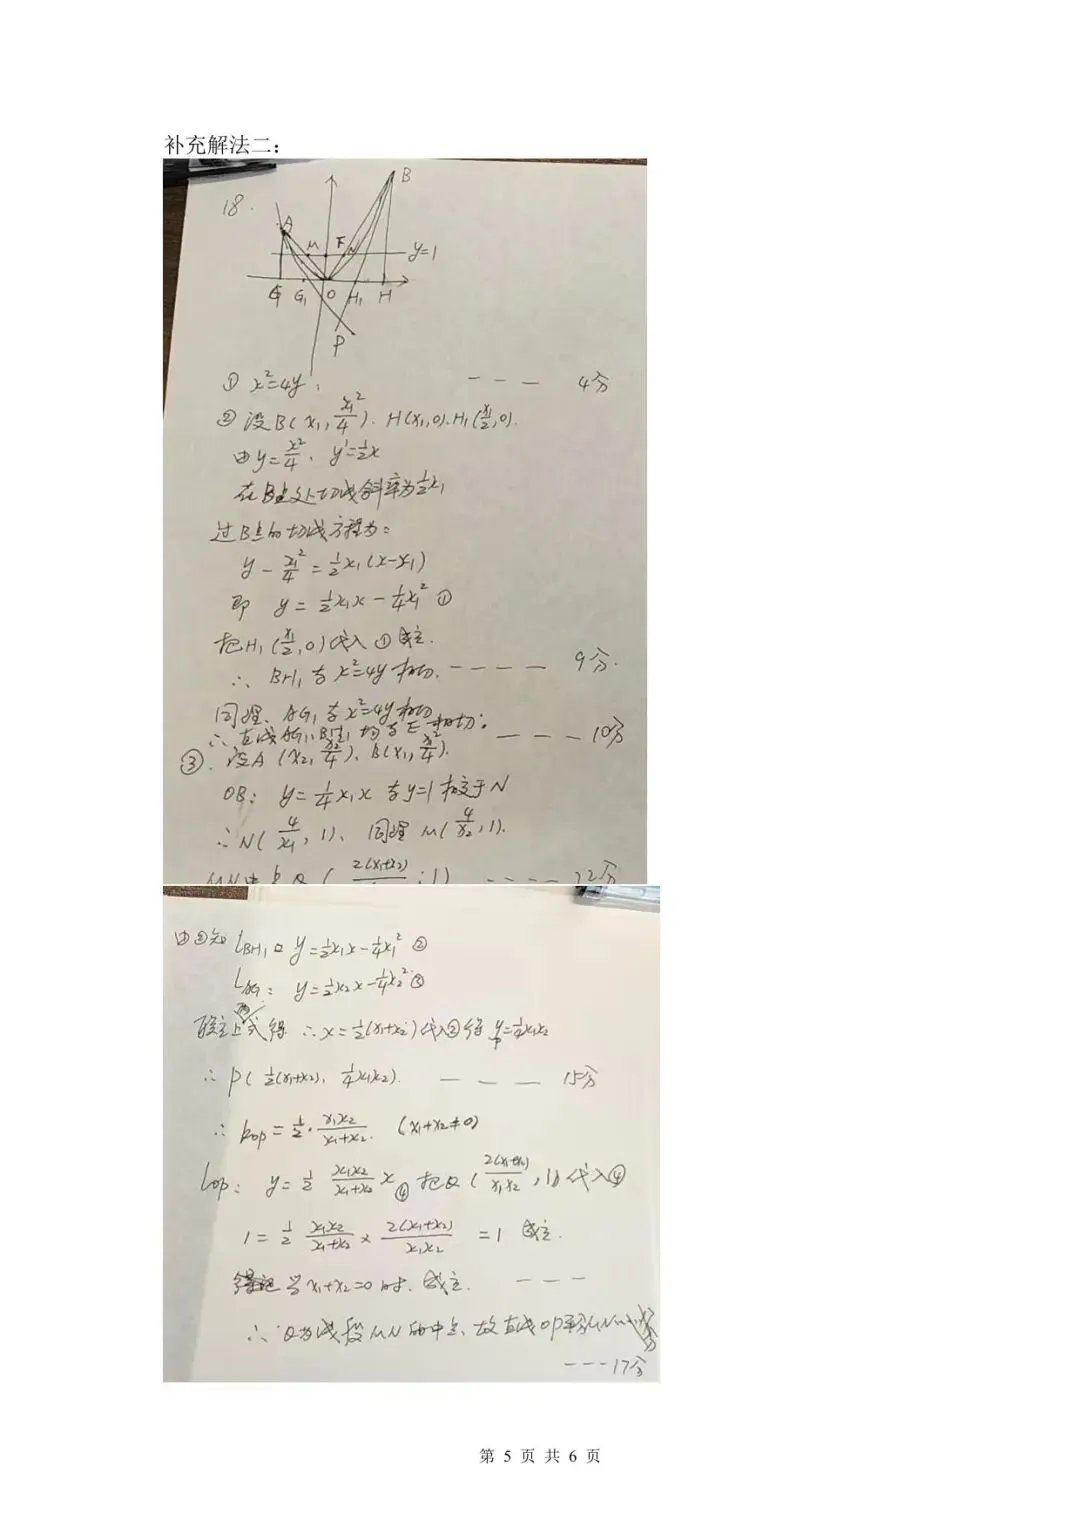 补充解法二：
18.
B
A
M
F
N
y=1
G
G₁
O
H₁
H
P
① x²=4y； --- 4分
② 设B(x₁, x₁²/4). H(x₁,0). H₁(x₁/2,0).
由y=x²/4. y'=½x
在B点处切线斜率为½x₁
过B点的切线方程为：
y-x₁²/4=½x₁(x-x₁)
即 y=½x₁x-¼x₁² ①
把H₁(x₁/2,0)代入①成立.
∴ BH₁与x²=4y相切. ---- 9分.
同理、AG₁与x²=4y相切
∴直线AG₁、BH₁均与E相切. --- 10分
③. 设A(x₂, x₂²/4)、B(x₁, x₁²/4).
OB: y=¼x₁x 与y=1相交于N
∴N(4/x₁, 1)、同理 M(4/x₂, 1).
MN中点Q(2(x₁+x₂)/ , 1) ---- 12分
由②知 L_BH₁: y=½x₁x-¼x₁² ②
L_AG₁: y=½x₂x-¼x₂² ③
联立上两式得 ∴x=½(x₁+x₂)代入②得 y=¼x₁x₂
∴ P(½(x₁+x₂), ¼x₁x₂). --- 15分
∴ k_OP=½·x₁x₂/(x₁+x₂). (x₁+x₂≠0)
l_OP: y=½ x₁x₂/(x₁+x₂) x ④ 把Q(2(x₁+x₂)/x₁x₂, 1)代入④
1=½ x₁x₂/(x₁+x₂) × 2(x₁+x₂)/x₁x₂ =1 成立.
当x₁+x₂=0时. 成立. ---
∴ Q为线段MN的中点、故直线OP平分MN
---17分
第 5 页 共 6 页